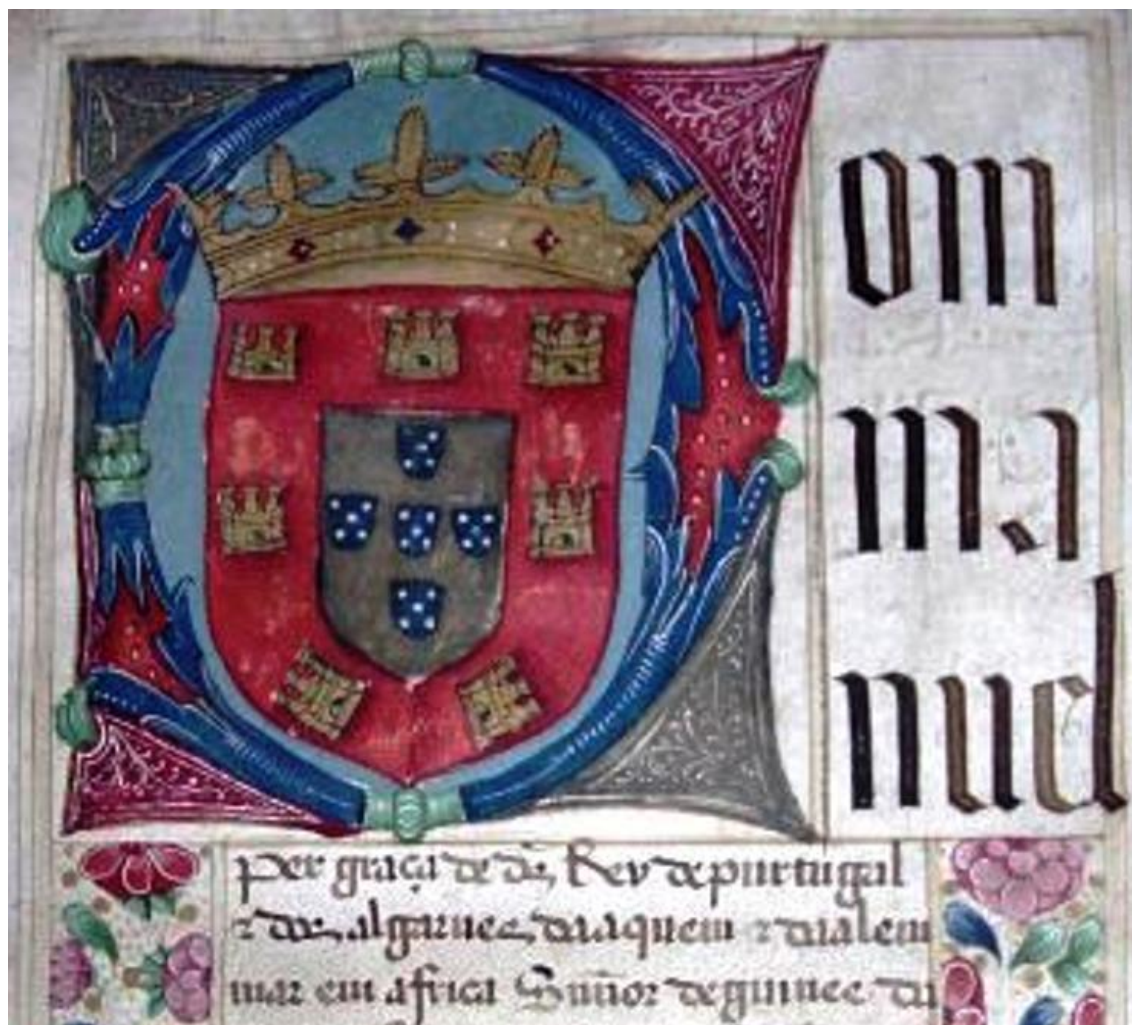 Dom
ma
nuel
per graça de ds̃ Rey de purtugal
⁊ dos algarues daaquem ⁊ daalem
mar em africa Sñor de guinee da